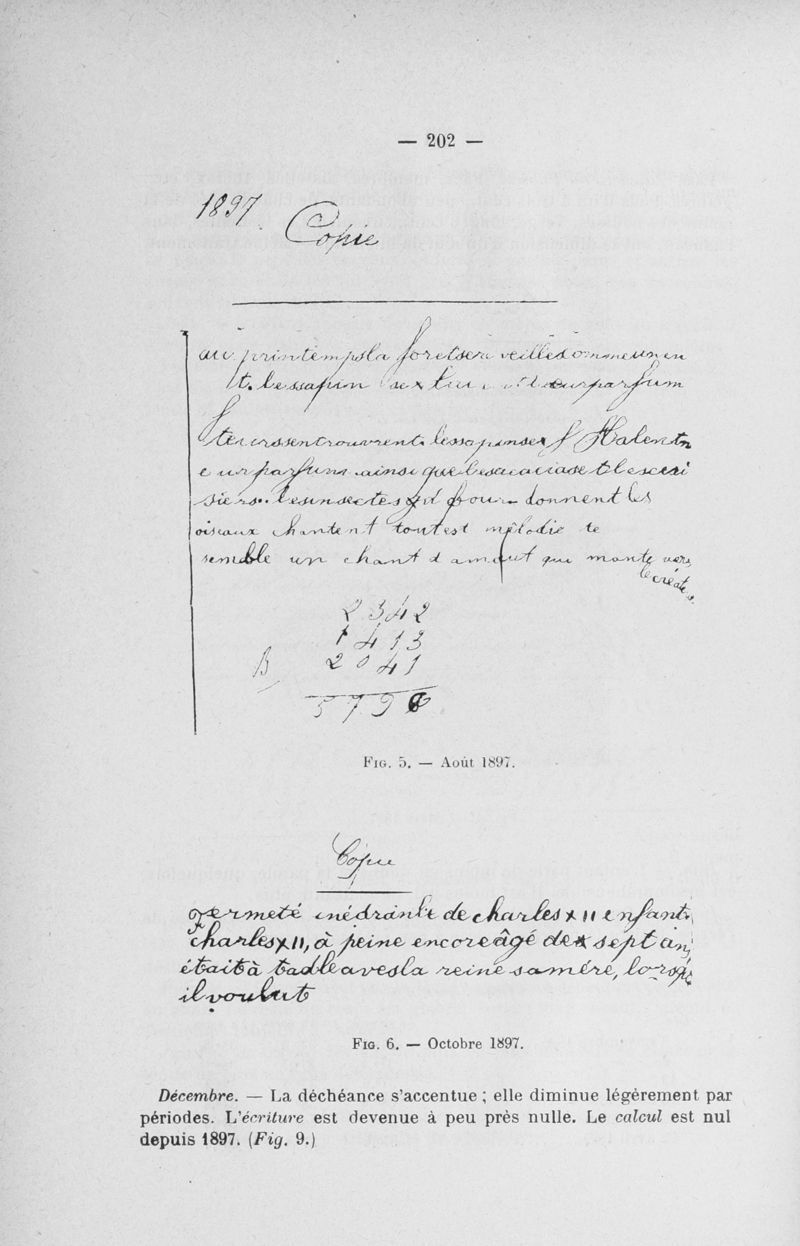 — 202 —
1897
Copie
au printemps la foretse veillecommeunen
t. Lessapin sex leurparfum
lessapinsex Halent
e urparfum ainsi quelesacaciase tlesceri
siers. lesinsectes pour donnent les
oiseaux chantent toutest mélodie te
semble un chant d amout qui monte vers
le créat
2342
1413
B 2041
579
FIG. 5. — Août 1897.
Copie
fermeté inédrante de charles x11 enfant.
charlesx11, à peine encoreâgé de sept an
étaità tadleavesla reine samére, lorsq
ilvoulut
FIG. 6. — Octobre 1897.
Décembre. — La déchéance s'accentue ; elle diminue légèrement par
périodes. L'écriture est devenue à peu près nulle. Le calcul est nul
depuis 1897. (Fig. 9.)